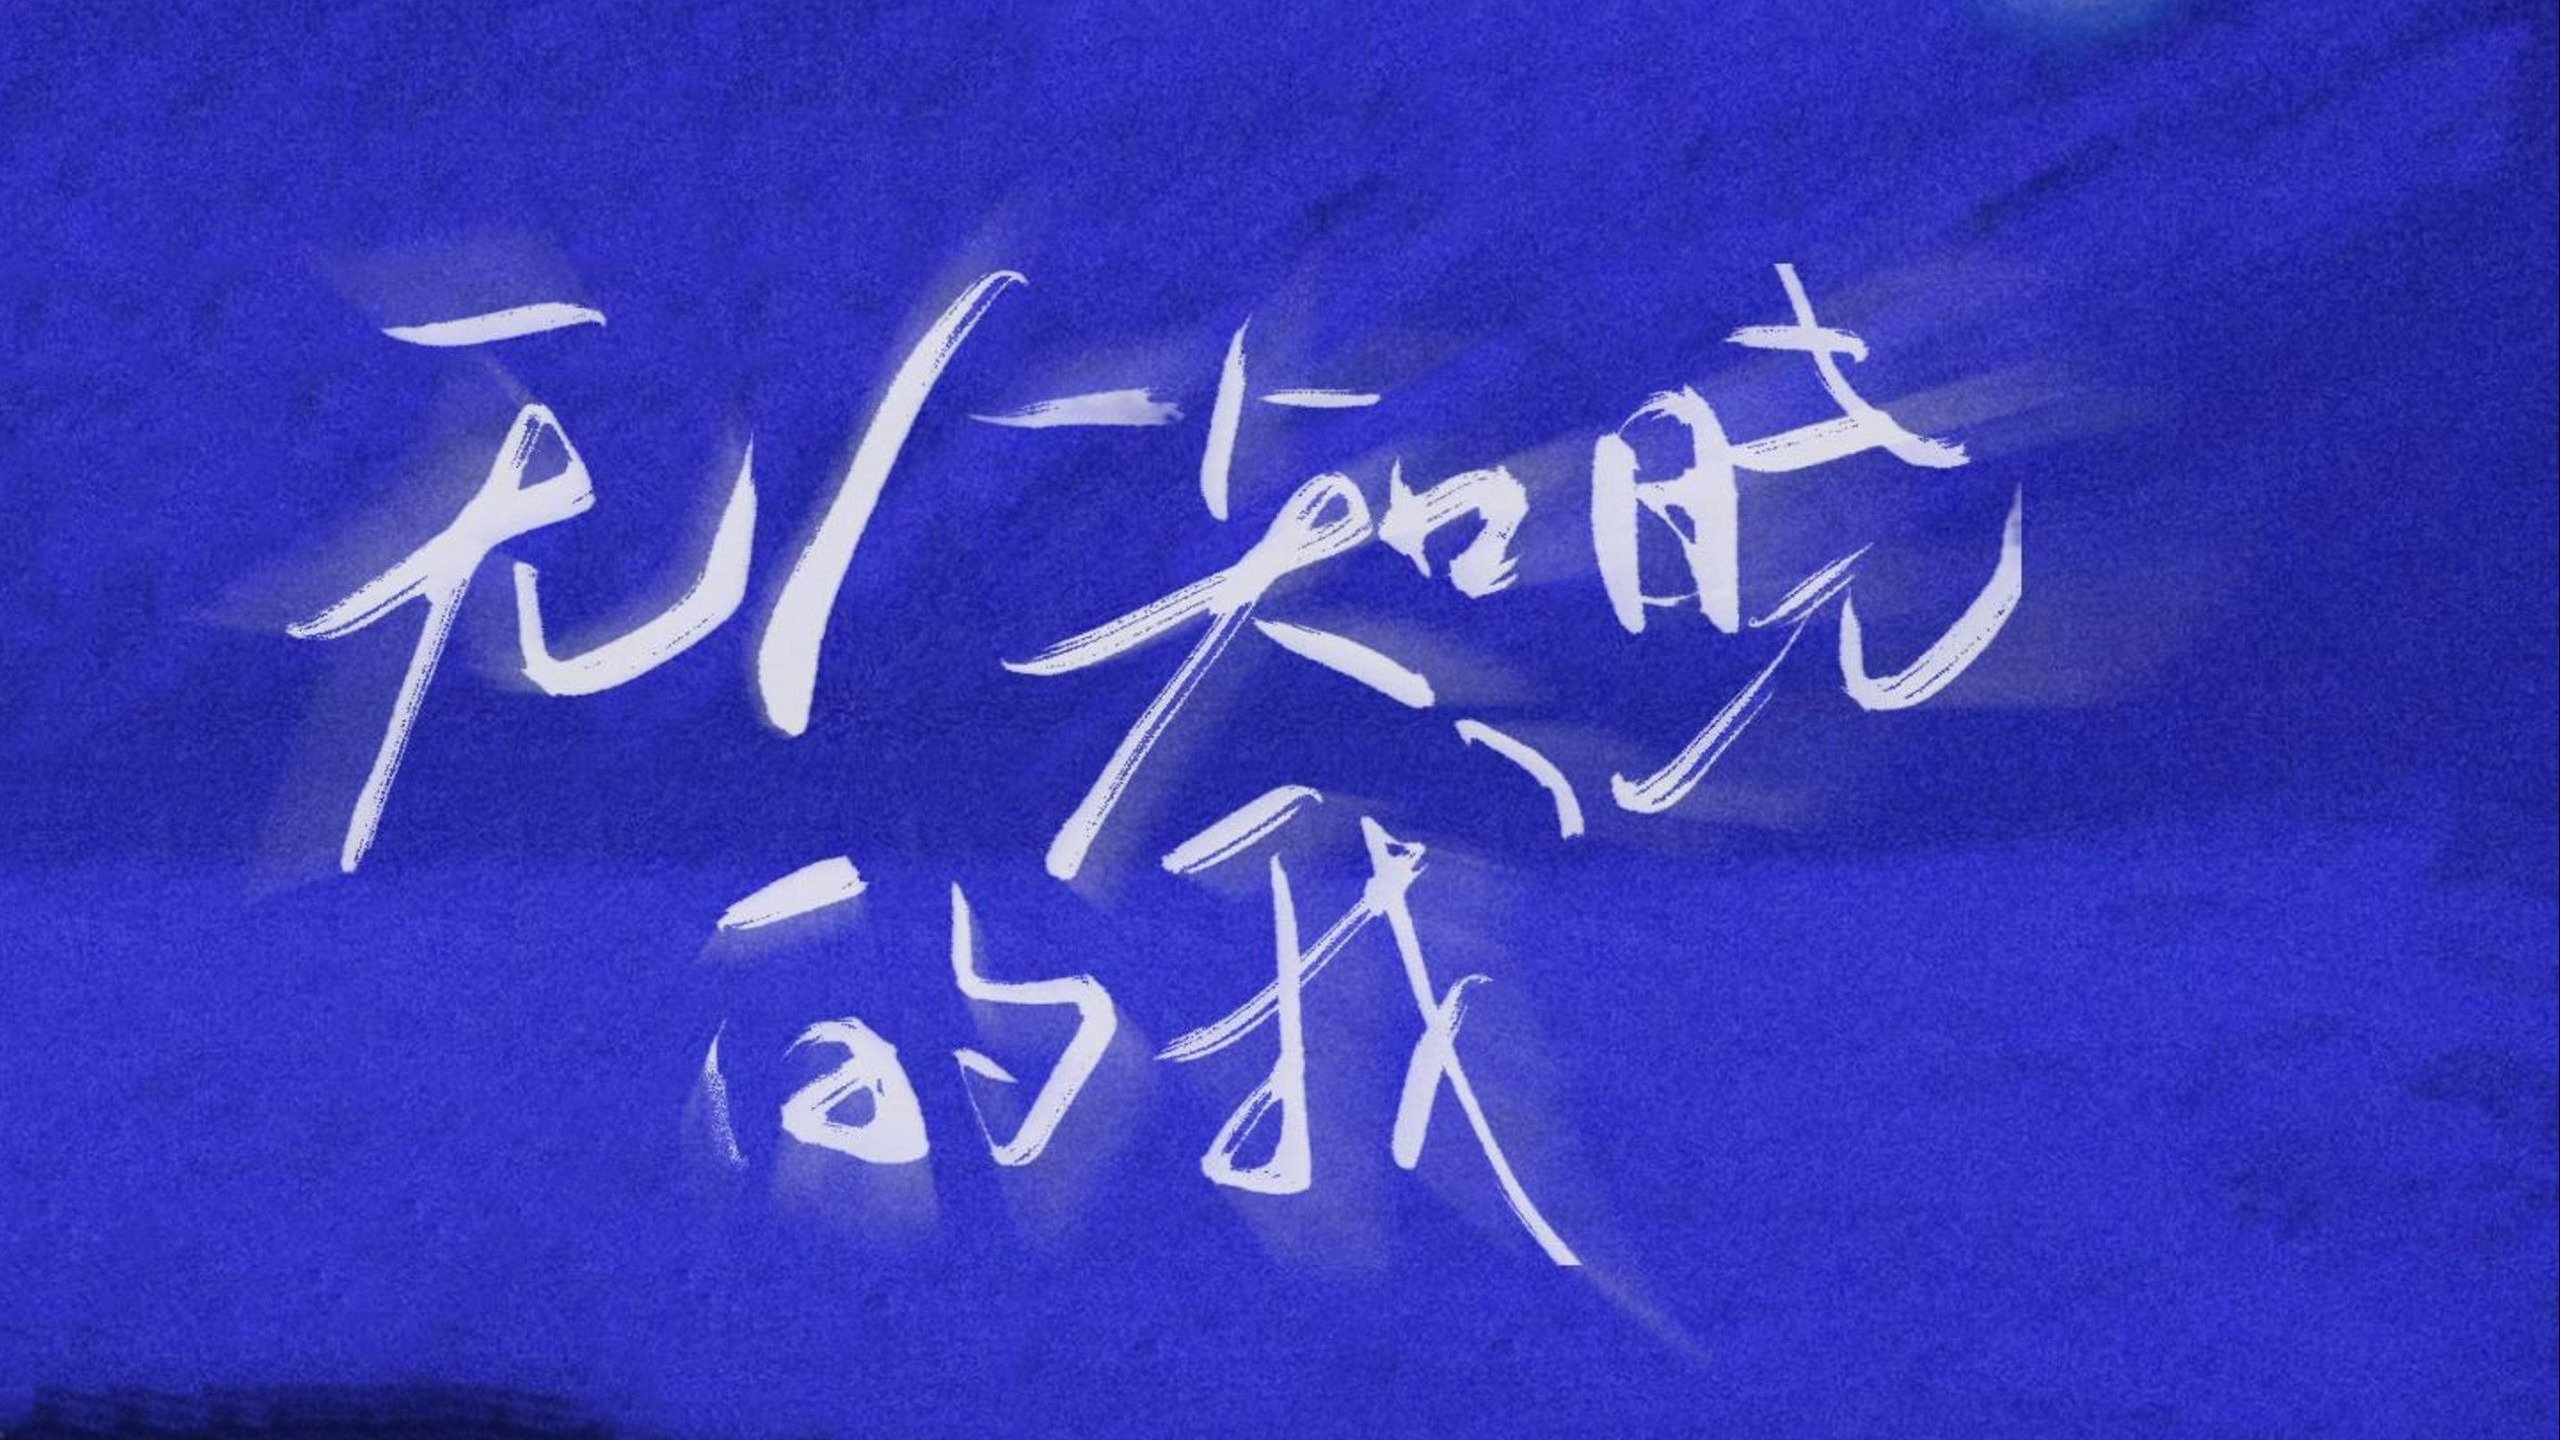 无人知晓
的我